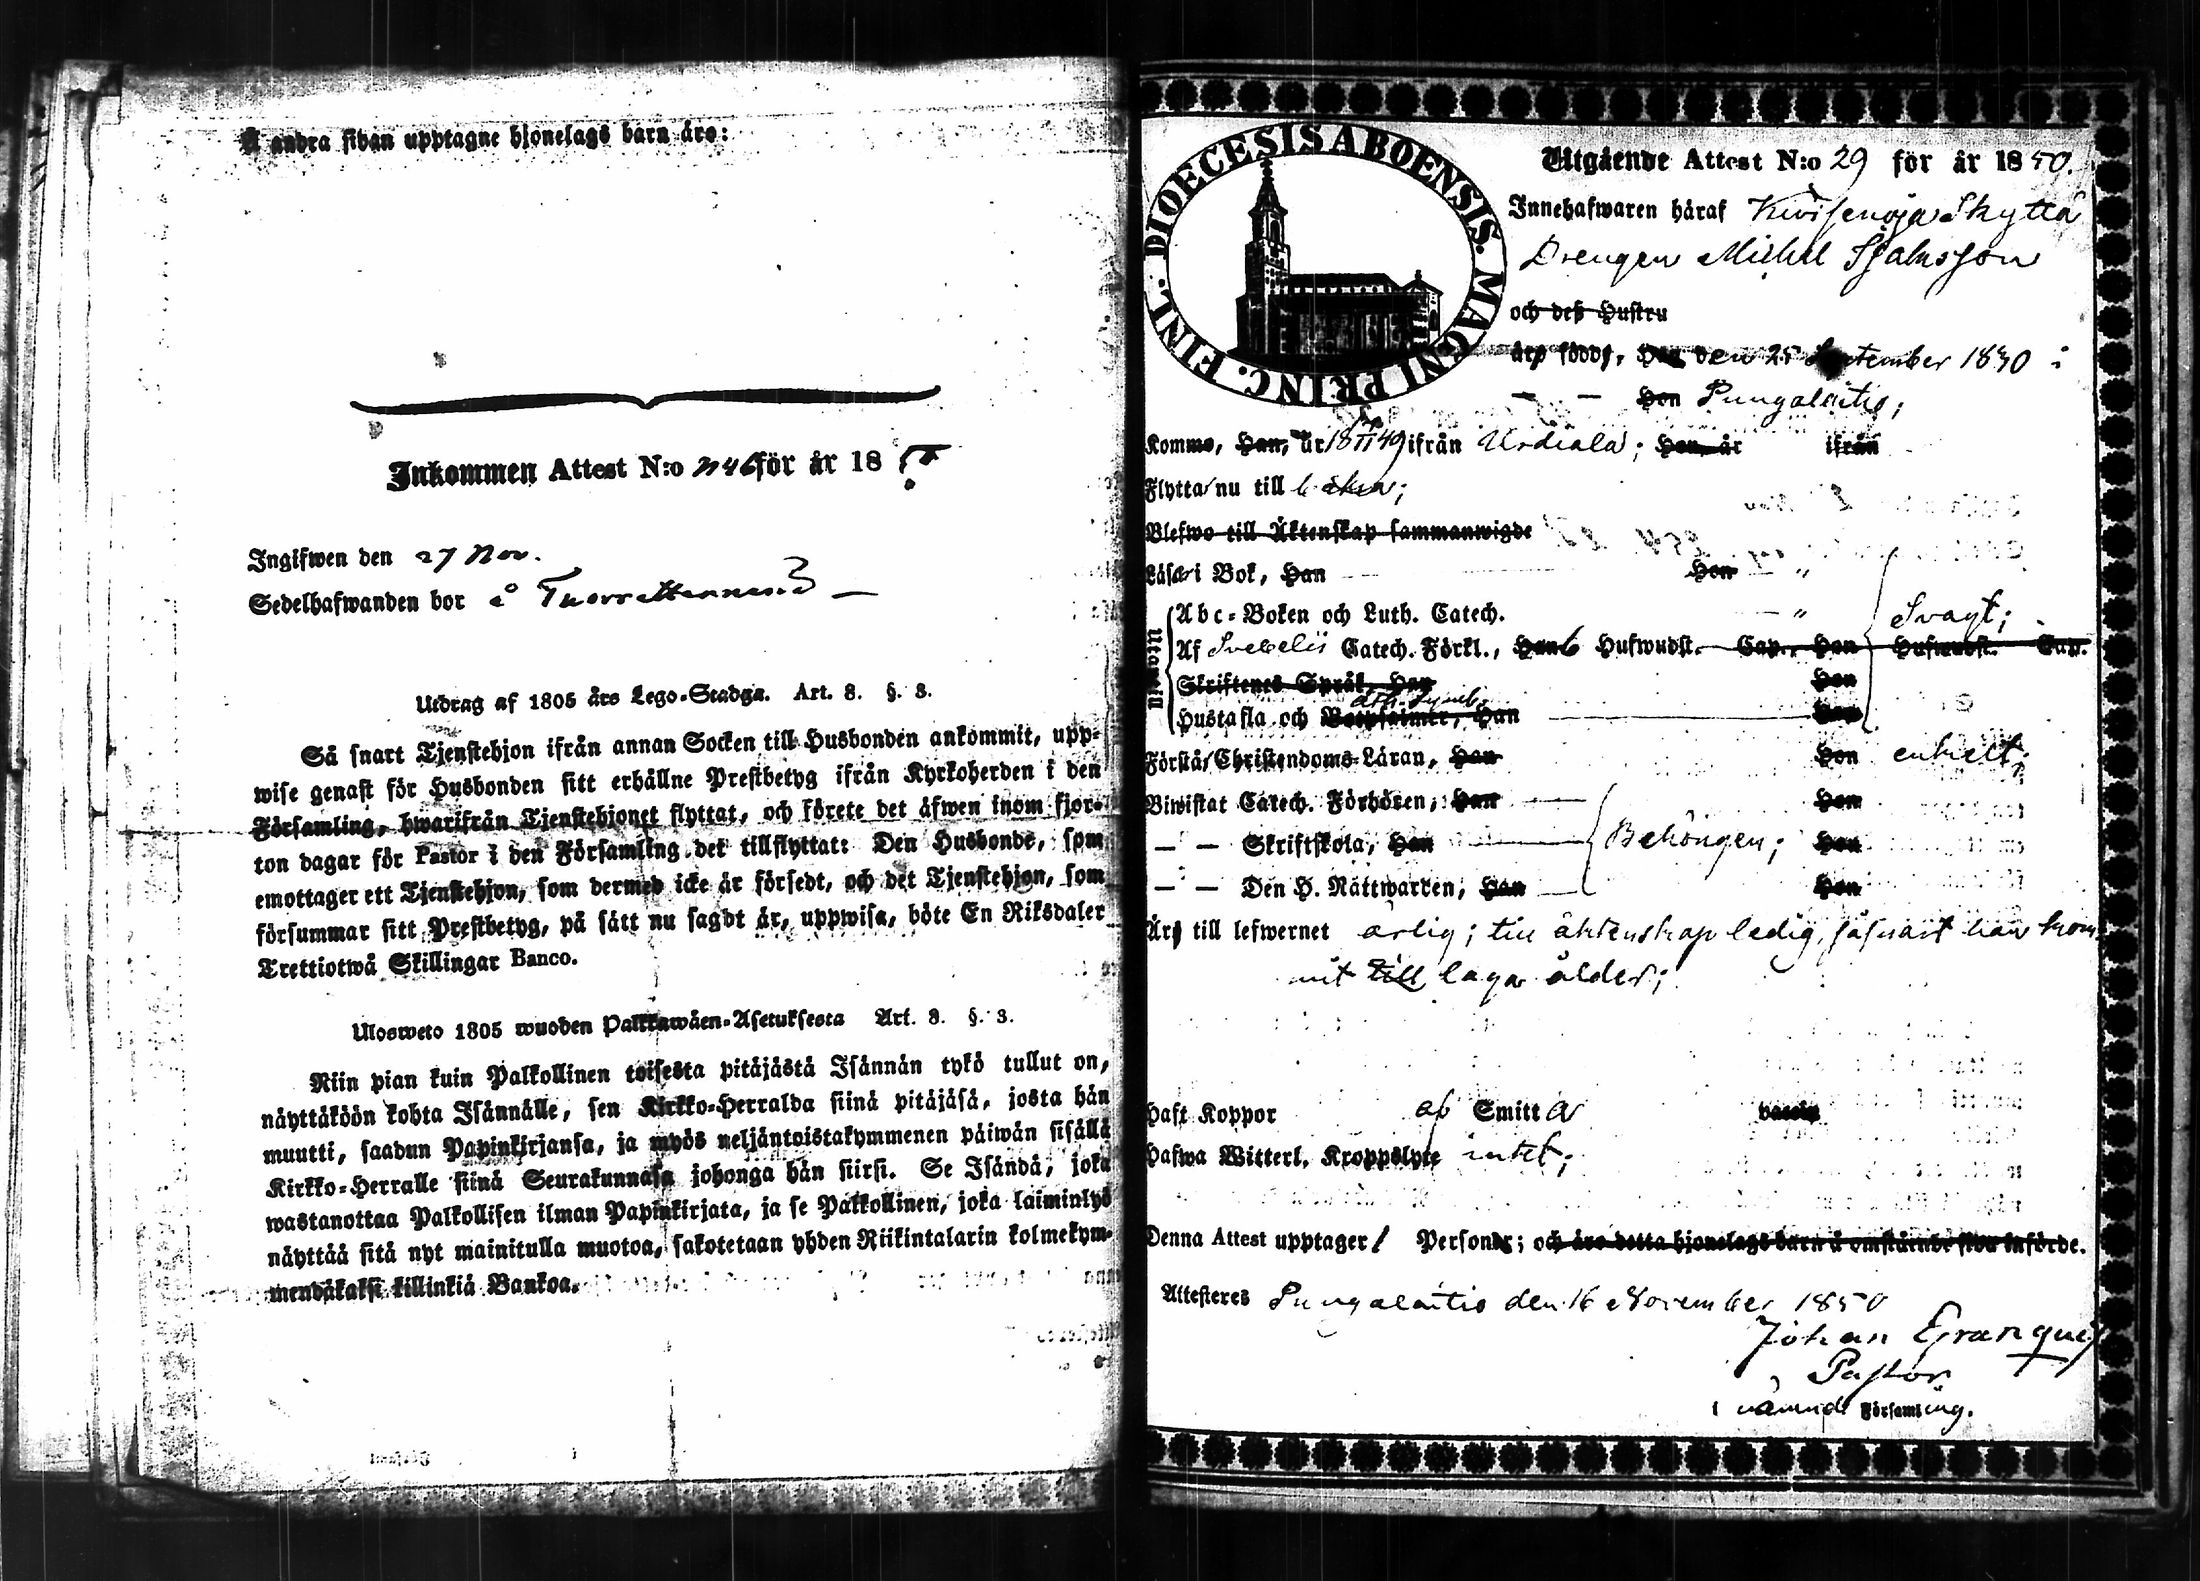 Å andra sidan upptagne hjonelags barn äro:
Inkommen Attest N:o 246 för år 18
Ingifwen den 27 Nov.
Sedelhafwanden bor å
Utdrag af 1805 års Lego-Stadga. Art. 8. §. 3.
Så snart Tjenstehjon ifrån annan Socken till Husbonden ankommit, upp-
wise genast för Husbonden sitt erhållne Prestbetyg ifrån Kyrkoherden i den
Församling, hwarifrån Tjenstehjonet flyttat, och förete det äfwen inom fjor-
ton dagar för Pastor i den Församling det tillflyttat: Den Husbonde, som
emottager ett Tjenstehjon, som dermed icke är försedt, och det Tjenstehjon, som
försummar sitt Prestbetyg, på sätt nu sagdt är, uppwisa, böte En Riksdaler
Trettiotwå Skillingar Banco.
Ulosweto 1805 wuoden Palkkawäen-Asetuksesta Art. 8. §. 3.
Niin pian kuin Palkollinen toisesta pitäjästä Isännän tykö tullut on,
näyttäköön kohta Isännälle, sen Kirkko-Herralda siinä pitäjäsä, josta hän
muutti, saadun Papinkirjansa, ja myös neljäntoistakymmenen päiwän sisällä
Kirkko-Herralle siinä Seurakunnasa johonga hän siirsi. Se Isändä, joka
wastanottaa Palkollisen ilman Papinkirjata, ja se Palkollinen, joka laiminlyö
näyttää sitä nyt mainitulla muotoa, sakotetaan yhden Riikintalarin kolmekym-
mendäkaksi killinkiä Bankoa.
DIOECESIS ABOENSIS. MAGNI PRINC. FINL.
Utgående Attest N:o 29 för år 1850.
Innehafwaren häraf Skyttä
Drengen Michel
och deß Hustru
äro födde, Han den 25 September 1830 i
— — Hon Pungalaitio;
Komme, Han, år 18 49 ifrån Urdiala; Hon, år ifrån
Flytta nu till
Blefwo till Äktenskap sammanwigde
Läsa i Bok, Han Hon "
Utantill
Abc-Boken och Luth. Catech. — " Svagt;
Af Svebelii Catech. Förkl., Han 6 Hufwudst. Cap., Hon Hufwudst. Cap.
Skriftenes Språk, Han Hon
Hustafla och Botpsalmer, Han Ath. Symb. Hon
Förstå Christendoms-Läran, Han Hon enkelt;
Biwistat Catech. Förhören, Han Hon
— — Skriftskola, Han Behörigen; Hon
— — Den H. Nattwarden, Han Hon
Äro till lefwernet ärlig; till äktenskap ledig, såsnart han kom-
mit till laga ålder;
Haft Koppor af Smitta vaccin
Hafwa Witterl. Kroppslyte intet;
Denna Attest upptager 1 Person; och äro detta hjonelags barn å omstående sida införde.
Attesteras Pungalaitio den 16 November 1850
Johan Granqvist
Pastor
i nämnde Församling.